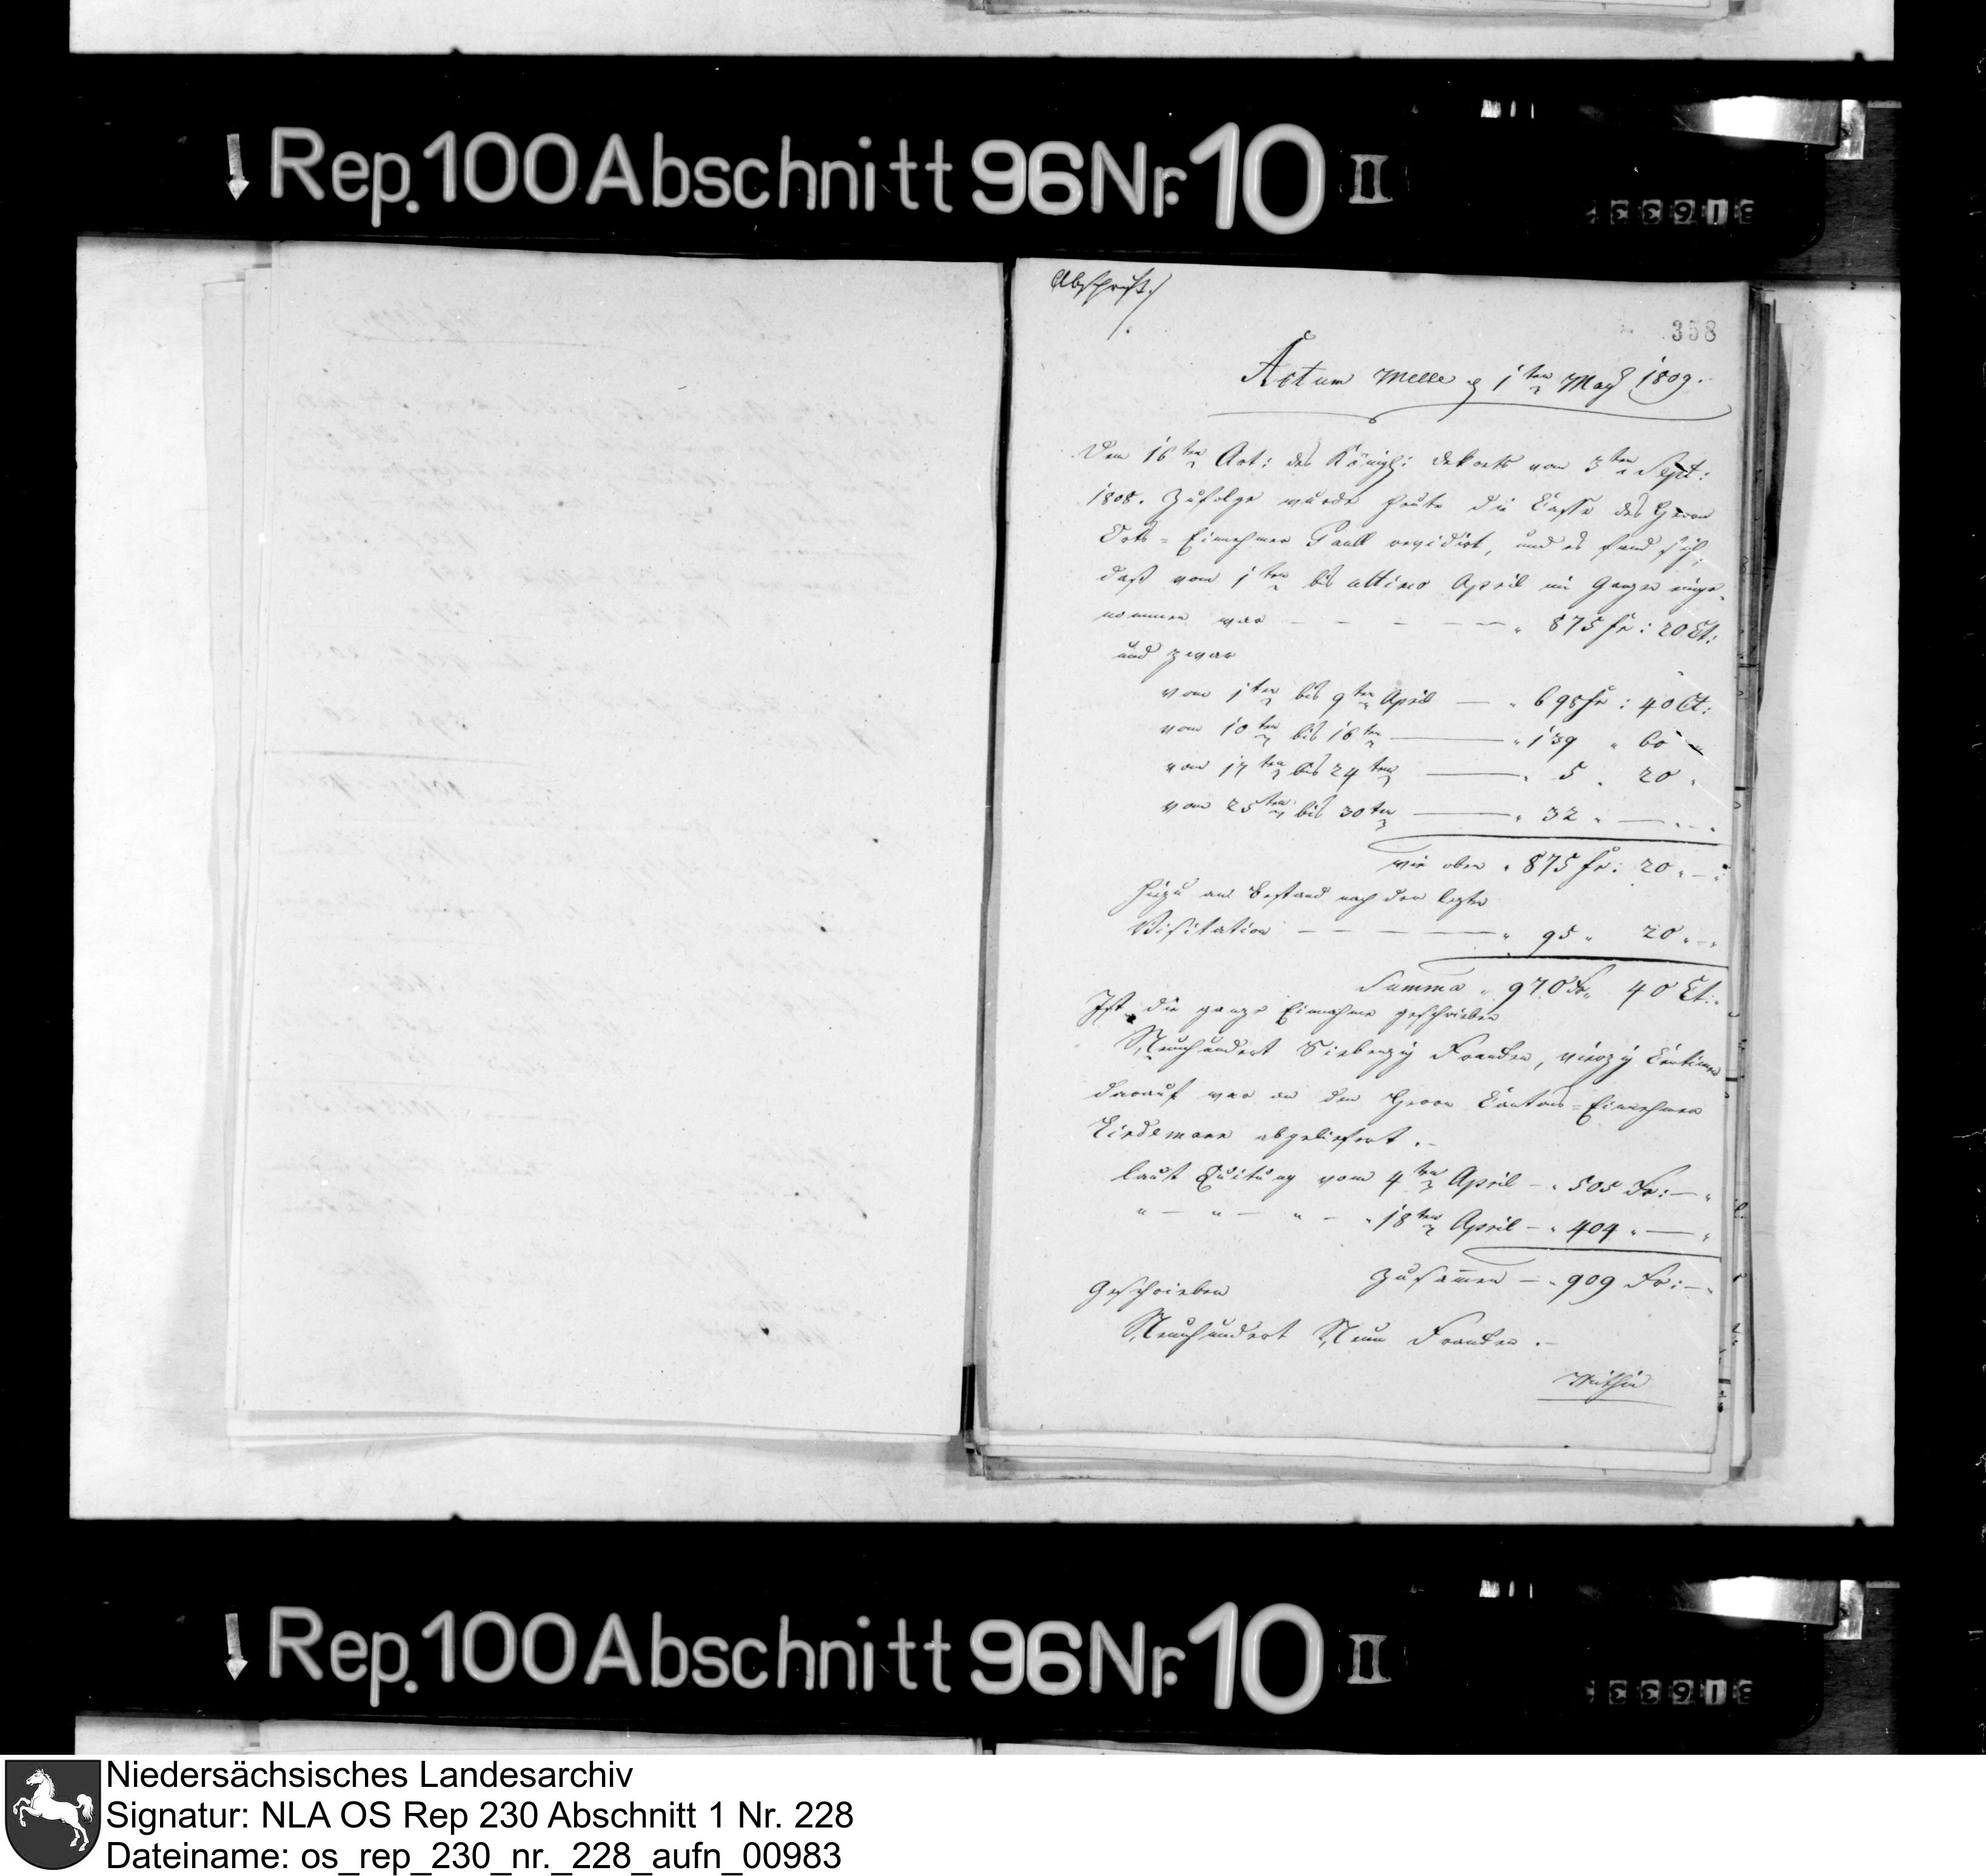 Rep. 100 Abschnitt 96 Nr. 10 II
31633
Abschrift.
358
Actum Melle d 1ten May 1809.
Dem 16ten Art: des Königl: Dekrets vom 3ten Sept:
1808. zufolge wurde heute die Casse des Herrn
Orts-Einnehmer Pauli revidirt, und es fand sich,
daß vom 1ten bis ultimo April im Ganzen einge-
nommen war — — — — " 875 fr: 20 Ct:
und zwar
vom 1ten bis 9ten April — " 698 fr: 40 Ct:
vom 10ten bis 16ten — " 139 " 60 "
vom 17ten bis 24ten — " 5 " 20 "
vom 25ten bis 30ten — " 32 " — "
wie oben " 875 fr: 20 "
hiezu an Bestand nach der letzten
Visitation — — — — " 95 " 20 "
Summa " 970 Fr 40 Ct:
Ist die ganze Einnahme geschrieben
Neunhundert Siebenzig Franken, vierzig Centimen
darauf war an den Herrn Cantons-Einnehmer
abgeliefert.
laut Quitung vom 4ten April — " 505 Fr: — "
" — " — " — " 18ten April — " 404 " — "
zusammen — " 909 Fr: — "
Geschrieben
Neunhundert Neun Franken.
Mithin
Rep. 100 Abschnitt 96 Nr. 10 II
31633
Niedersächsisches Landesarchiv
Signatur: NLA OS Rep 230 Abschnitt 1 Nr. 228
Dateiname: os_rep_230_nr._228_aufn_00983